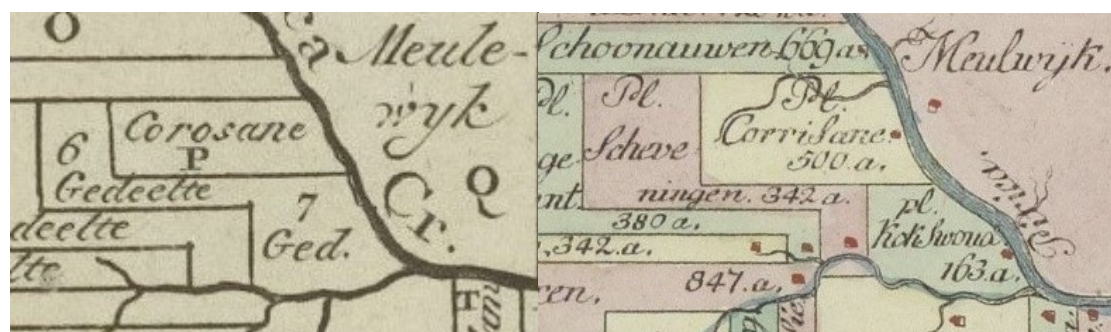 O
Ca
Meule-
wyk
Corosane
P
6
Gedeelte
7
Ged.
Q
Cr.
deelte
lte
T
Schoonauwen 669 a.
Meulwijk.
Pl.
Scheve
ningen. 342 a.
Pl.
CorriSane.
500. a.
ge
nt.
380 a.
342. a.
pl.
KokSwoud
163. a.
847. a.
en.